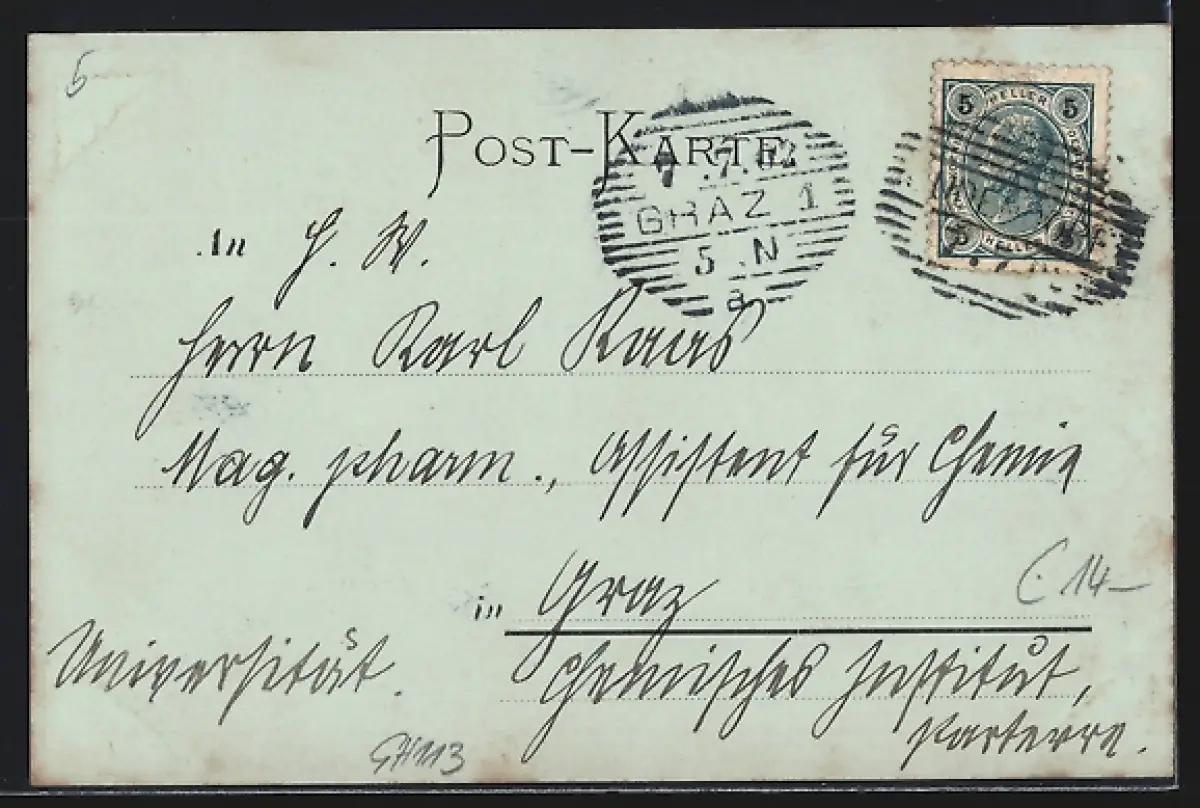 5
POST-KARTE.
7.7.02
GRAZ 1
5.N
a
5 HELLER 5
5 HELLER 5
An H. W.
Herrn Karl Kaas
Mag. pharm., Assistent für Chemie
in Graz
C 14–
Universität.
Chemisches Institut,
Parterre.